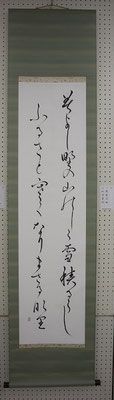 みよし野の山のしら雪積るらし
ふるさと寒くなりまさる那里